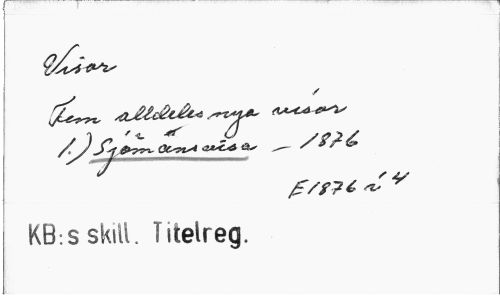 Visor
Fem alldeles nya visor
1.) Sjömansvisa – 1876
E1876 i 4
KB:s skill. Titelreg.